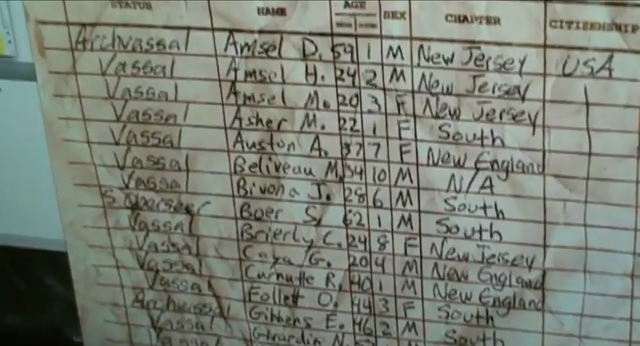 STATUS NAME AGE SEX CHAPTER CITIZENSHIP
Archvassal Amsel D. 59 1 M New Jersey USA
Vassal Amsel H. 24 2 M New Jersey
Vassal Amsel M. 20 3 F New Jersey
Vassal Asher M. 22 1 F South
Vassal Auston A. 37 7 F New England
Vassal Beliveau M. 34 10 M N/A
Vassal Bivona J. 28 6 M South
Boer S. 62 1 M South
Vassal Brierly C. 24 8 F New Jersey
Vassal Caya G. 20 4 M New England
Vassal Curnutte R. 40 1 M New England
Vassal Follett O. 44 3 F South
Archvassal Gibbens E. 46 2 M South
Vassal Girardin N.